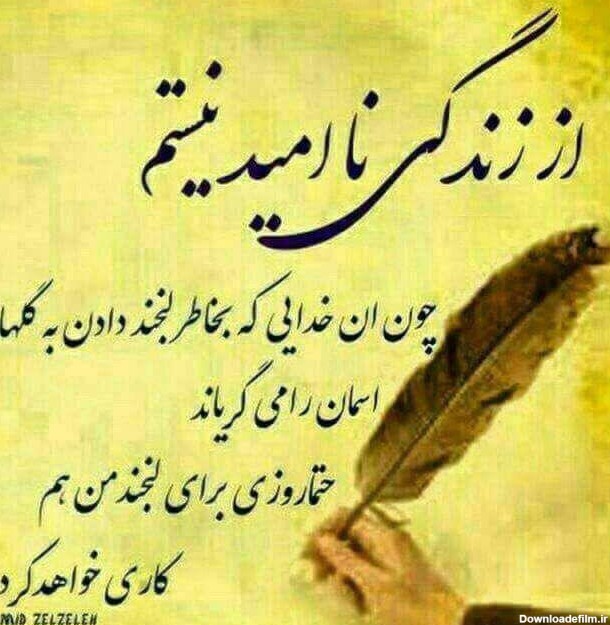 از زندگی نا امید نیستم
چون ان خدایی که بخاطر لبخند دادن به گلها
اسمان را می گریاند
حتما روزی برای لبخند من هم
کاری خواهد کرد
ZELZELEH
Downloadefilm.ir